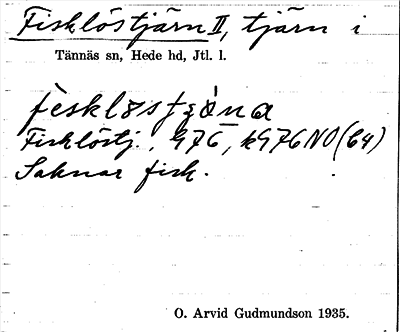 Fisklöstjärn II, tjärn i
Tännäs sn, Hede hd, Jtl. l.
Fisklöstj., 976, k976NO(64)
Saknar fisk.
O. Arvid Gudmundson 1935.